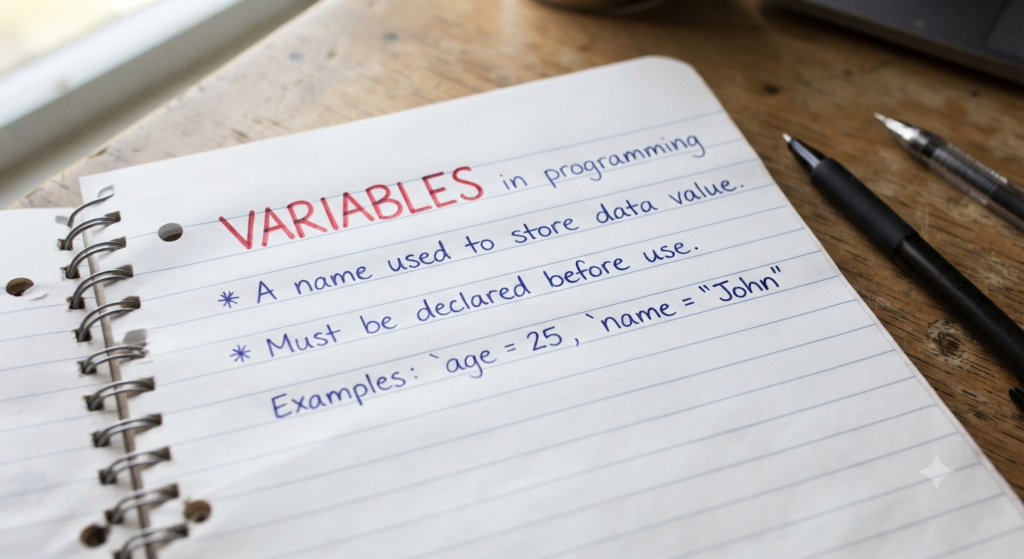 VARIABLES in programming
* A name used to store data value.
* Must be declared before use.
Examples: `age = 25, `name = "John"